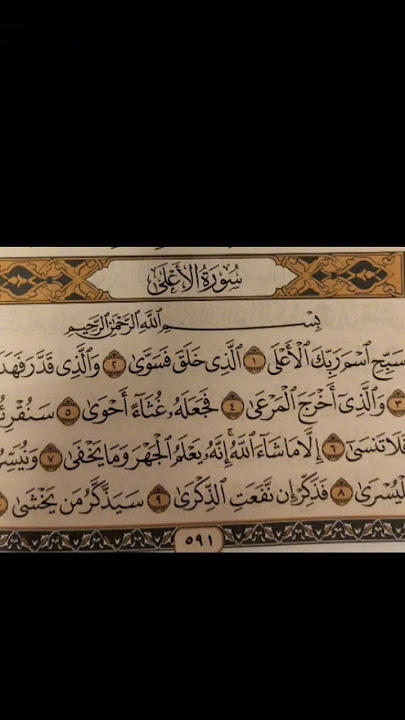 سُورَةُ الأَعْلَى
بِسْمِ اللَّهِ الرَّحْمَٰنِ الرَّحِيمِ
سَبِّحِ ٱسْمَ رَبِّكَ ٱلْأَعْلَى ١ ٱلَّذِى خَلَقَ فَسَوَّىٰ ٢ وَٱلَّذِى قَدَّرَ فَهَدَ
٣ وَٱلَّذِىٓ أَخْرَجَ ٱلْمَرْعَىٰ ٤ فَجَعَلَهُۥ غُثَآءً أَحْوَىٰ ٥ سَنُقْرِئُ
فَلَا تَنسَىٰٓ ٦ إِلَّا مَا شَآءَ ٱللَّهُ ۚ إِنَّهُۥ يَعْلَمُ ٱلْجَهْرَ وَمَا يَخْفَىٰ ٧ وَنُيَسِّرُ
لِلْيُسْرَىٰ ٨ فَذَكِّرْ إِن نَّفَعَتِ ٱلذِّكْرَىٰ ٩ سَيَذَّكَّرُ مَن يَخْشَىٰ
٥٩١